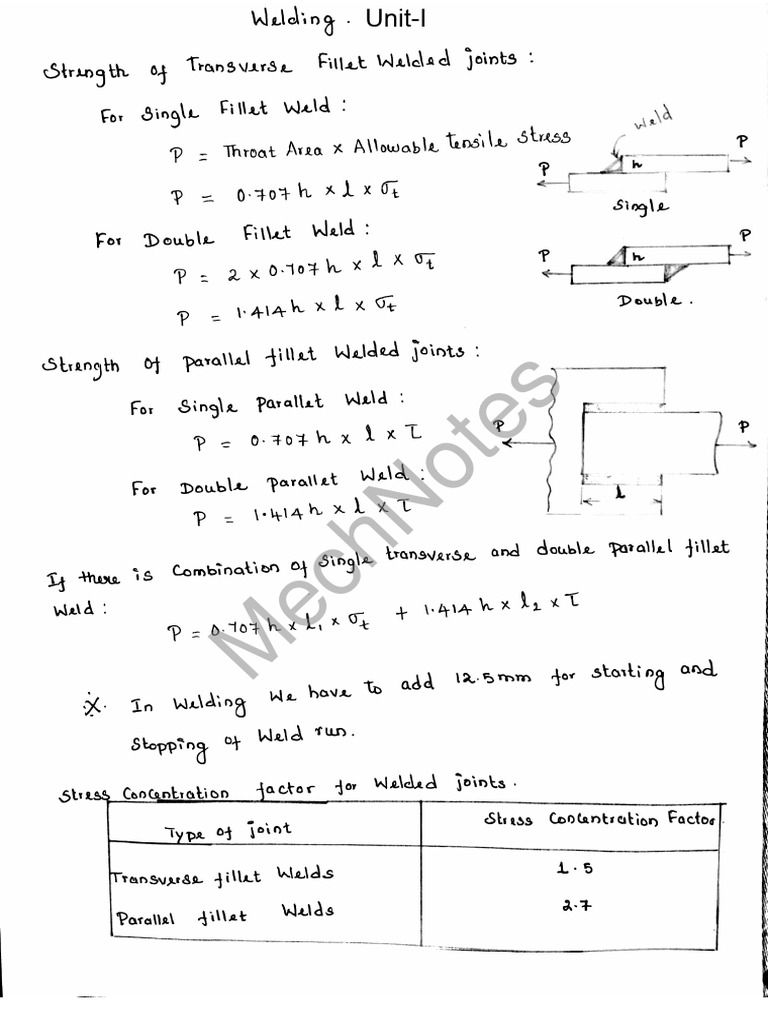 Welding. Unit-I
Strength of Transverse Fillet Welded joints:
For Single Fillet Weld:
P = Throat Area x Allowable tensile stress
P = 0.707 h x l x σt
For Double Fillet Weld:
P = 2 x 0.707 h x l x σt
P = 1.414 h x l x σt
weld
P
P
h
Single
P
P
h
Double.
Strength of parallel fillet Welded joints:
For Single Parallel Weld:
P = 0.707 h x l x τ
For Double Parallel Weld:
P = 1.414 h x l x τ
P
P
l
If there is Combination of Single transverse and double parallel fillet
Weld:
P = 0.707 h x l1 x σt + 1.414 h x l2 x τ
※. In Welding We have to add 12.5mm for starting and
Stopping of Weld run.
Stress Concentration factor for Welded joints.
Type of joint
Stress Concentration Factor.
Transverse fillet Welds
1.5
Parallel fillet Welds
2.7
MechNotes